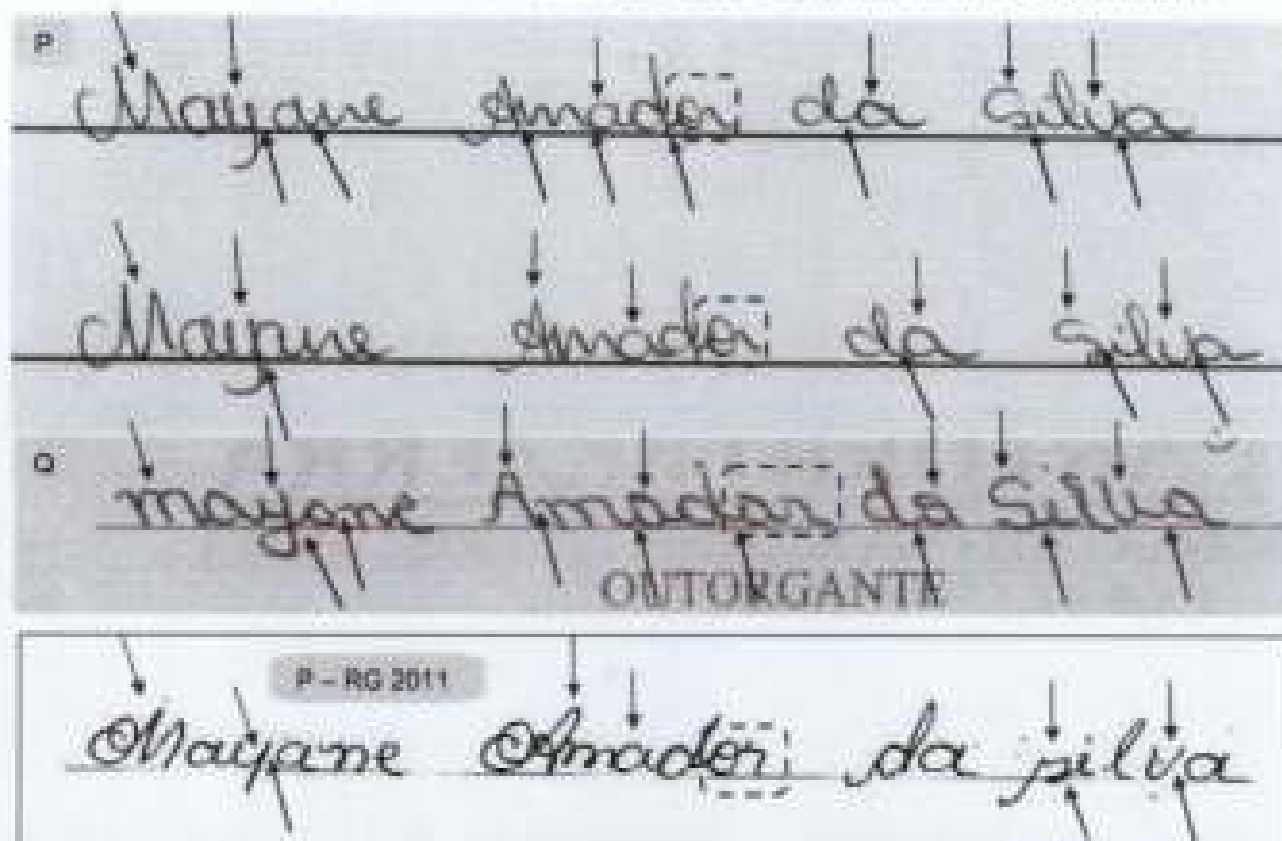 P
Mayane Amador da Silva
Mayane Amador da Silva
Q
mayane Amador da Silvia
OUTORGANTE
P – RG 2011
Mayane Amador da silva